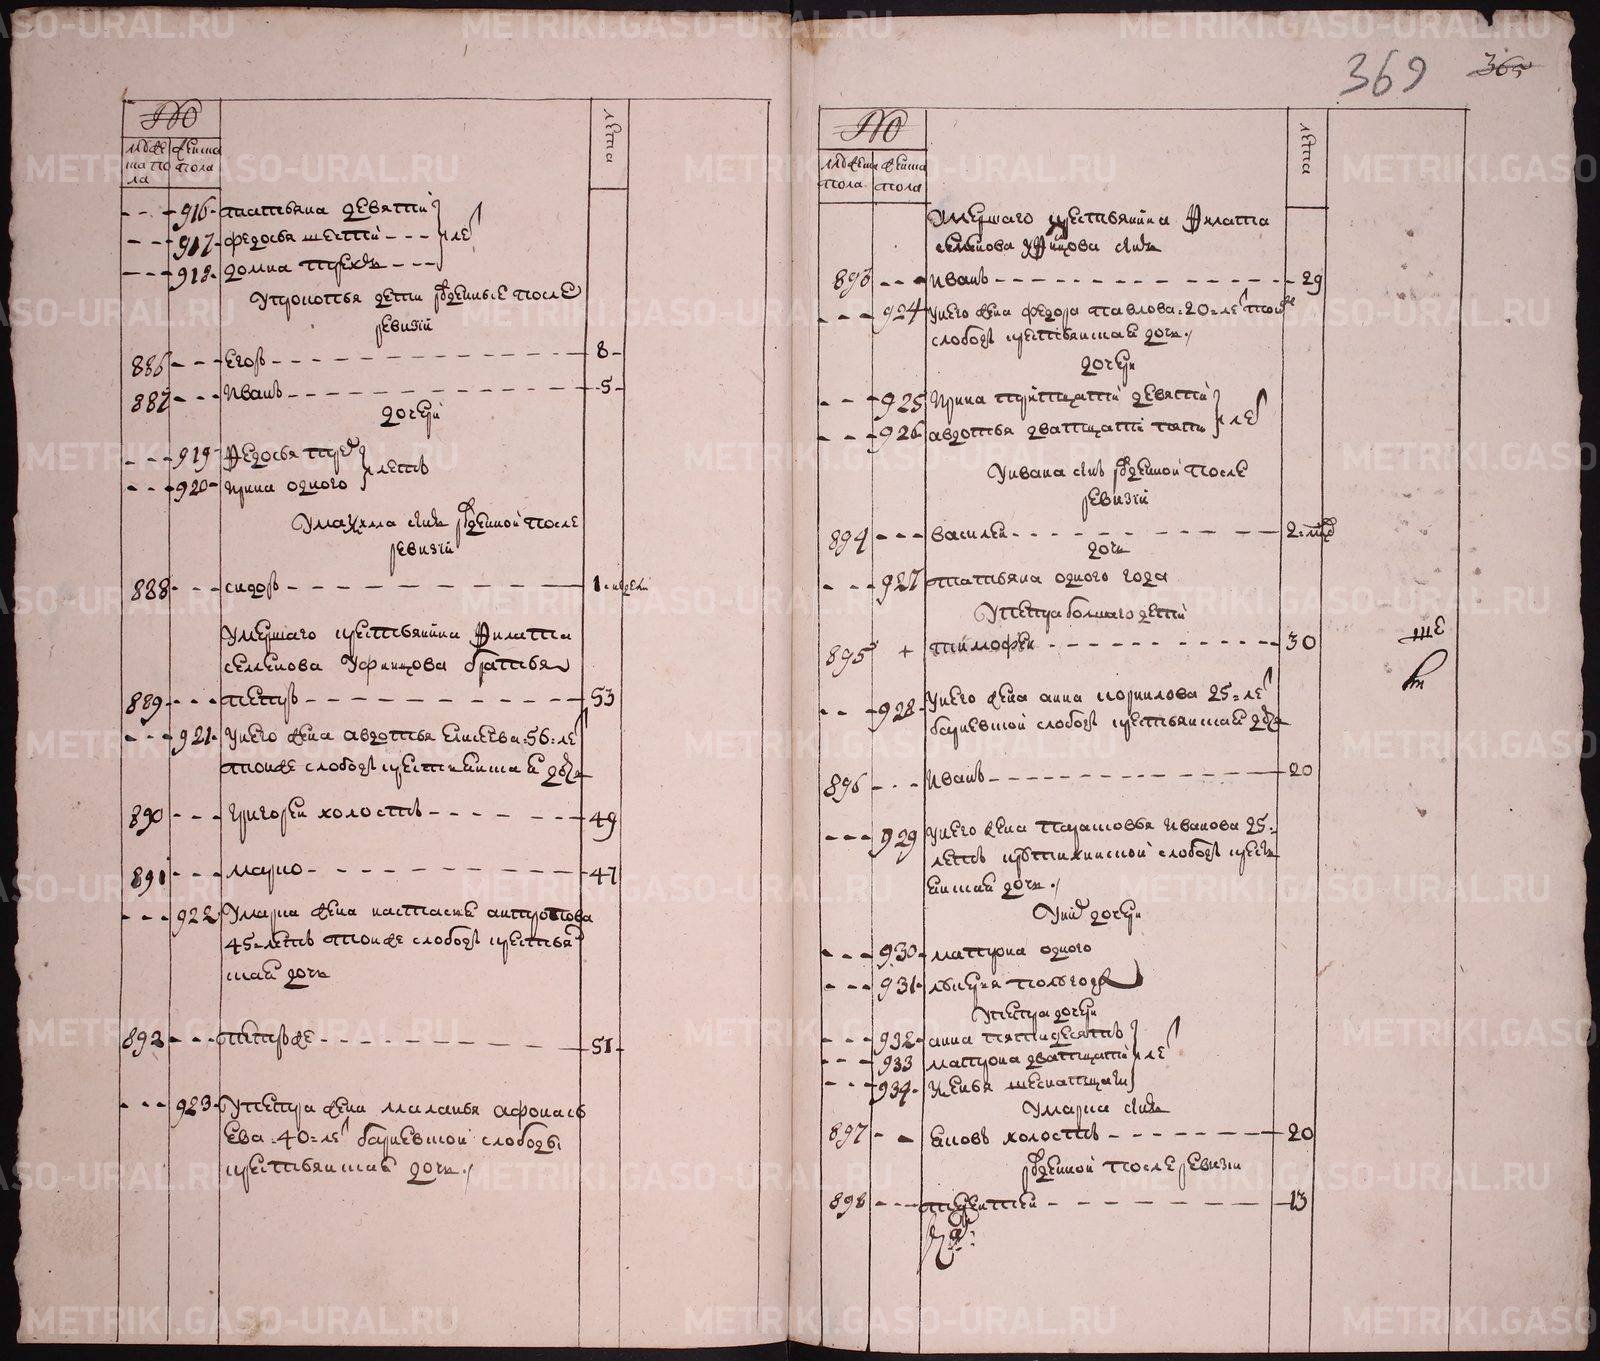 369 365
№
мужеска пола
женска пола
лета
916 татьяна девяти
917 федосья шести
918 домна трехъ
лет
У прокопья дети рожденные после
ревизии
886 егоръ 8
887 Иванъ 5
дочери
919 Федосья трех
920 ирина одного
летъ
сынъ рожденной после
ревизии
888 сидоръ 1 недели
Умершаго крестьянина Филата
семенова Уфинцова братья
889 петръ 53
921 У него жена авдотья елисеева 56 лет
тоиже слободы крестьянская дочь
890 григореи холостъ 49
891 марко 47
922 У марка жена настасья антропова
45 летъ тоиже слободы крестья
нская дочь
892 петръ же 51
923 У петра жена маланья афонась
ева 40 лет барневской слободы
крестьянская дочь
№
мужеска пола
женска пола
лета
Умершаго крестьянина Филата
семенова Уфинцова сынъ
893 Иванъ 29
924 У него жена федора павлова 20 лет тои же
слободы крестьянская дочь
дочери
925 Ирина тритцати девяти
926 авдотья дватцати пяти
лет
У ивана сынъ рожденной после
ревизии
894 василеи 2 мес
дочь
927 татьяна одного года
У петра болшаго дети
895 + тимофеи 30
928 У него жена анна корнилова 25 лет
барневской слободы крестьянская дочь
896 Иванъ 20
929 У него жена парасковья иванова 25
летъ слободы кресть
янская дочь
У них дочери
930 матрона одного
931 лукерья полугода
У петра дочери
932 анна пятидесятъ
933 матрона дватцати
934 Ксенья шеснатцати
лет
У марка сынъ
897 яковъ холостъ 20
рожденной после ревизии
898 терентеи 13